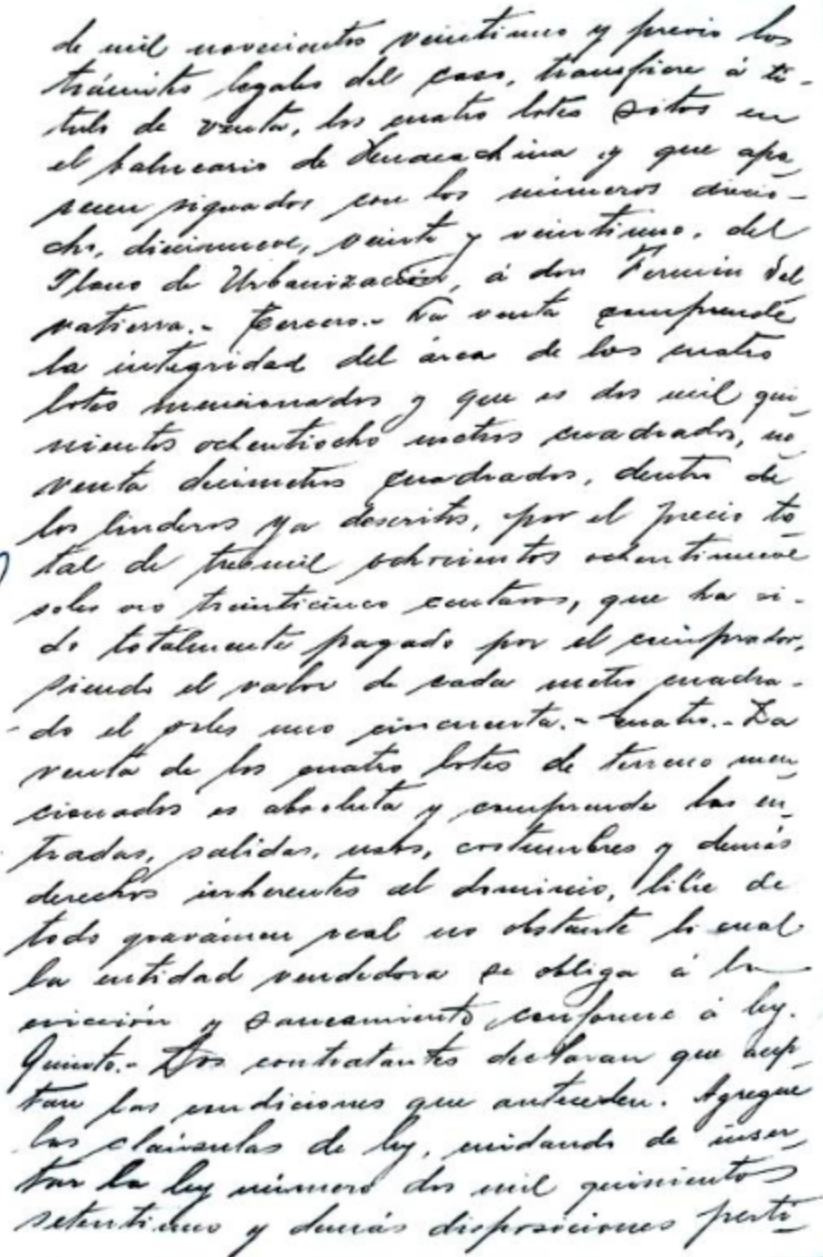 de mil novecientos veintiuno y previo los
trámites legales del caso, transfiere á tí-
tulo de venta, los cuatro lotes sitos en
el balneario de Huacachina y que apa
recen signados con los números diecio-
cho, diecinueve, veinte y veintiuno, del
Plano de Urbanización, á don Fermín Sal
vatierra.- Tercero.- La venta comprende
la integridad del área de los cuatro
lotes mencionados y que es dos mil qui
nientos ochentiocho metros cuadrados, no
venta decimetros cuadrados, dentro de
los linderos ya descritos, por el precio to
tal de tresmil ochocientos ochentinueve
soles oro treinticinco centavos, que ha si-
do totalmente pagado por el comprador,
siendo el valor de cada metro cuadra-
do el soles uno cincuenta.- Cuatro.- La
venta de los cuatro lotes de terreno men
cionados es absoluta y comprende las en
tradas, salidas, usos, costumbres y demás
derechos inherentes al dominio, libre de
todo gravámen real no obstante lo cual
la entidad vendedora se obliga á la
evicción y saneamiento conforme á ley.
Quinto.- Los contratantes declaran que acep
tan las condiciones que anteceden. Agregue
las claúsulas de ley, cuidando de inser
tar la ley número dos mil quinientos
setentiuno y demás disposiciones perti